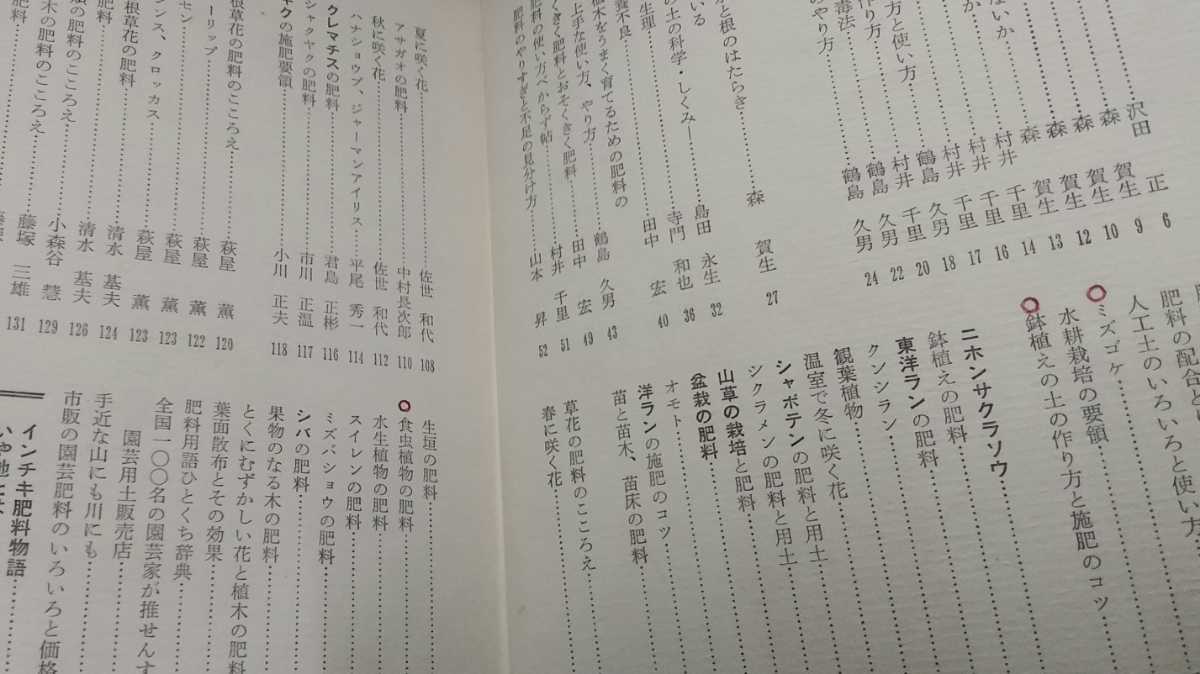 沢田 正 6
森 賀生 9
森 賀生 10
森 賀生 12
森 賀生 13
ないか 村井 千里 14
村井 千里 16
村井 千里 17
方と使い方 鶴島 久男 18
り方 村井 千里 20
毒法 鶴島 久男 22
のやり方 鶴島 久男 24
と根のはたらき 森 賀生 27
いる
の土の科学・しくみ― 島田 永生 32
生理 寺門 和也 36
養不良 田中 宏 40
植木をうまく育てるための肥料の
上手な使い方、やり方 鶴島 久男 43
くきく肥料とおそくきく肥料 田中 宏 49
肥料の使い方べからず帖 村井 千里 51
肥料のやりすぎと不足の見分け方 山本 昇 52
肥料の配合と
人工土のいろいろと使い方
ミズゴケ
水耕栽培の要領
鉢植えの土の作り方と施肥のコツ
ニホンサクラソウ
鉢植えの肥料
東洋ランの肥料
クンシラン
観葉植物
温室で冬に咲く花
シャボテンの肥料と用土
シクラメンの肥料と用土
山草の栽培と肥料
盆栽の肥料
オモト
洋ランの施肥のコツ
苗と苗木、苗床の肥料
草花の肥料のこころえ
春に咲く花
夏に咲く花 佐世 和代 108
アサガオの肥料 中村長次郎 110
秋に咲く花 佐世 和代 112
ハナショウブ、ジャーマンアイリス 平尾 秀一 114
クレマチスの肥料 君島 正彬 116
シャクヤクの肥料 市川 正温 117
キクの施肥要領 小川 正夫 118
根草花の肥料のこころえ 萩屋 薫 120
ーリップ 萩屋 薫 122
セン 萩屋 薫 123
ンス、クロッカス 萩屋 薫 123
根草花の肥料 清水 基夫 124
肥料 清水 基夫 126
類の肥料のこころえ 小森谷 慧 129
木の肥料のこころえ 藤塚 三雄 131
肥料
生垣の肥料
食虫植物の肥料
水生植物の肥料
スイレンの肥料
ミズバショウの肥料
シバの肥料
果物のなる木の肥料
とくにむずかしい花と植木の肥料
葉面散布とその効果
肥料用語ひとくち辞典
全国一〇〇名の園芸家が推せんす
園芸用土販売店
手近な山にも川にも
市販の園芸肥料のいろいろと価格
インチキ肥料物語